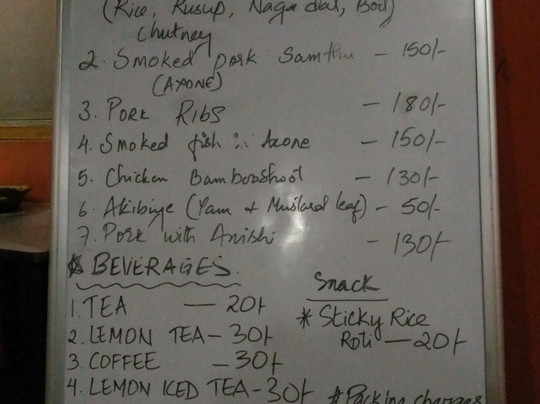 (Rice, Rusup, Naga dal, Boil
Chutney
2. Smoked pork Samthu - 150/-
(AXONE)
3. PORK RIBS - 180/-
4. Smoked fish in Axone - 150/-
5. Chicken Bambooshoot - 130/-
6. Akibiye (Yam + Mustard leaf) - 50/-
7. Pork with Anishi - 130/-
BEVERAGES.
1. TEA - 20/-
2. LEMON TEA - 30/-
3. COFFEE - 30/-
4. LEMON ICED TEA - 30/-
Snack
* Sticky Rice
Roti - 20/-
# Packing charges